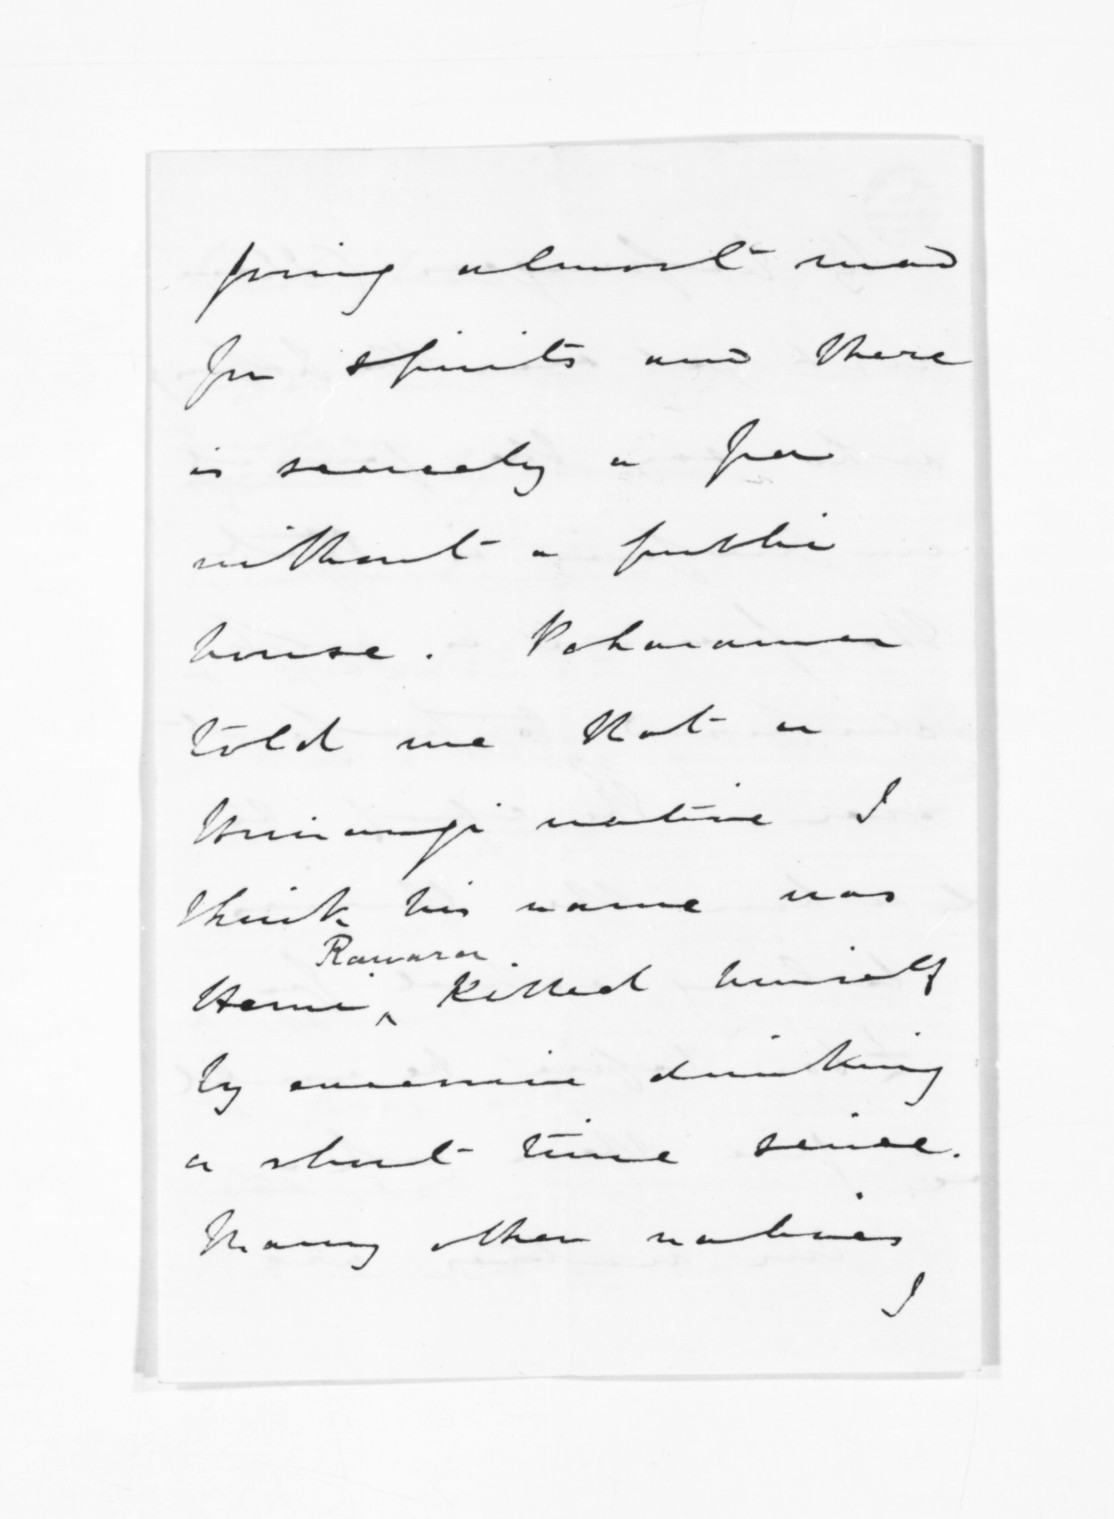 going almost mad
for spirits and there
is scarcely a pa
without a public
house. Poharama
told me that a
native I
think his name was
Hemi ‸ Rawara killed himself
by excessive drinking
a short time since.
Many other natives
I